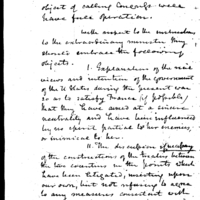 object of calling Congress will
have full operation.
With respect to the instructions
to the extraordinary minister they
should embrace the following
objects.
I. Explanation of the real
views and intention of the government
of the U States during the present war
so as to satisfy France if possible,
that they have aimed at a sincere
neutrality and have been influenced
by no spirit partial to her enemies,
or inimical to her.
II. The discussion
of the constructions of the treaties between
the two countries in the points which
have been litigated, insisting upon
our own, but not refusing to agree
to any measures consistent with